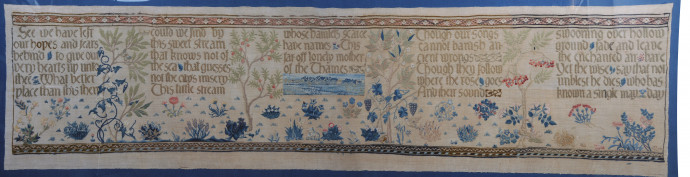 See we have left
our hopes and fears
behind to give our
very hearts up unto
thee What better
place than this then
could we find by
this sweet stream
that knows not of
the sea that guesses
not the citys misery
This little stream
whose hamlets scarce
have names This
far off lonely mother
of the Thames
Though our songs
cannot banish an
cient wrongs
though they follow
where the rose goes
And their sound
swooning over hollow
ground fade and leave
the enchanted air bare
Yet the wise say that not
unblest he dies who has
known a single may day